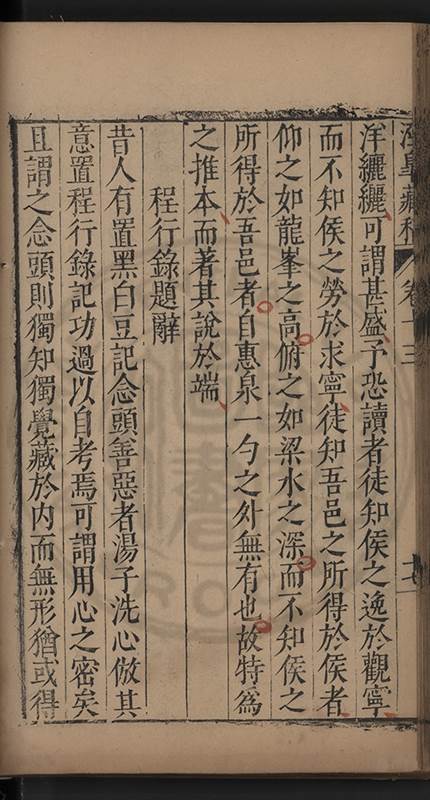 涇臯藏稿 卷十三
洋纚纚可謂甚盛予恐讀者徒知侯之逸於觀寧
而不知侯之勞於求寧徒知吾邑之所得於侯者
仰之如龍峯之高俯之如梁水之深而不知侯之
所得於吾邑者自惠泉一勺之外無有也故特爲
之推本而著其說於端
程行錄題辭
昔人有置黑白豆記念頭善惡者湯子洗心倣其
意置程行錄記功過以自考焉可謂用心之密矣
且謂之念頭則獨知獨覺藏於内而無形猶或得